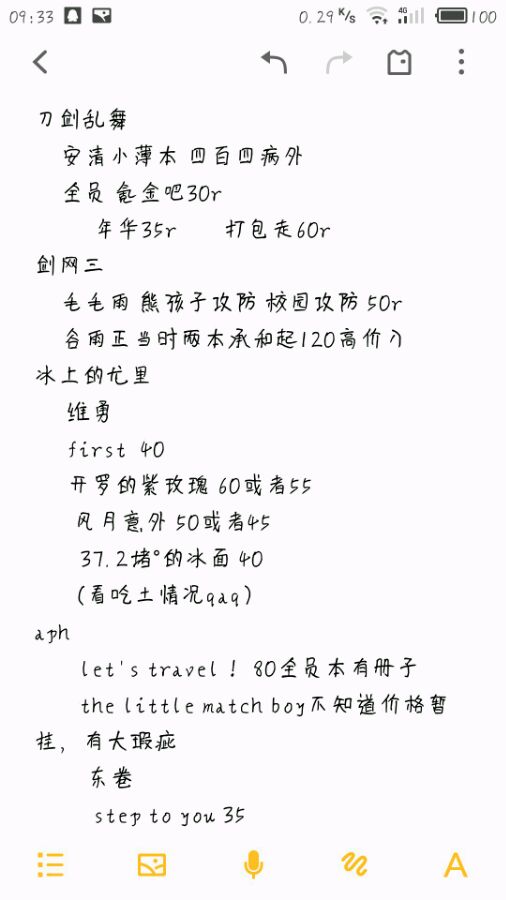 09:33 0.29 K/s 4G 100
刀剑乱舞
安清小薄本 四百四病外
全员 氪金吧30r
年华35r 打包走60r
剑网三
毛毛雨 熊孩子攻防 校园攻防 50r
谷雨正当时两本承和起120高价入
冰上的尤里
维勇
first 40
开罗的紫玫瑰 60或者55
风月意外 50或者45
37.2堵°的冰面 40
(看吃土情况qaq)
aph
let's travel！80全员本有册子
the little match boy不知道价格暂
挂，有大瑕疵
东卷
step to you 35
A